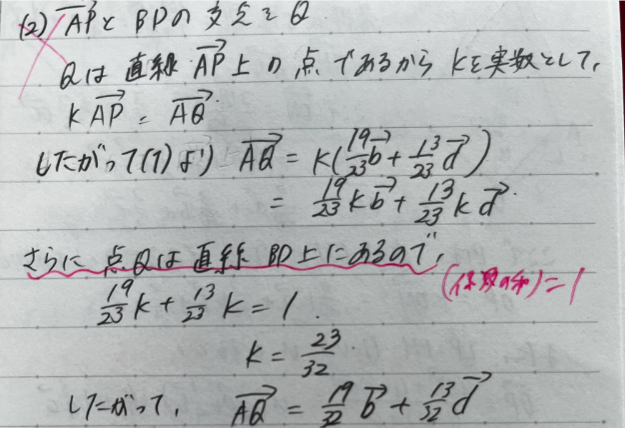 (2) $\overrightarrow{AP}$ と BDの交点を Q
Qは 直線 $\overrightarrow{AP}$ 上の点であるから Kを実数として,
$k\overrightarrow{AP} = \overrightarrow{AQ}$
したがって(1)より $\overrightarrow{AQ} = k(\frac{19}{23}\overrightarrow{b} + \frac{13}{23}\overrightarrow{d})$
$= \frac{19}{23}k\overrightarrow{b} + \frac{13}{23}k\overrightarrow{d}$.
さらに 点Qは 直線 BD上にあるので,
(係数の和)=1
$\frac{19}{23}k + \frac{13}{23}k = 1$.
$k = \frac{23}{32}$.
したがって, $\overrightarrow{AQ} = \frac{19}{32}\overrightarrow{b} + \frac{13}{32}\overrightarrow{d}$